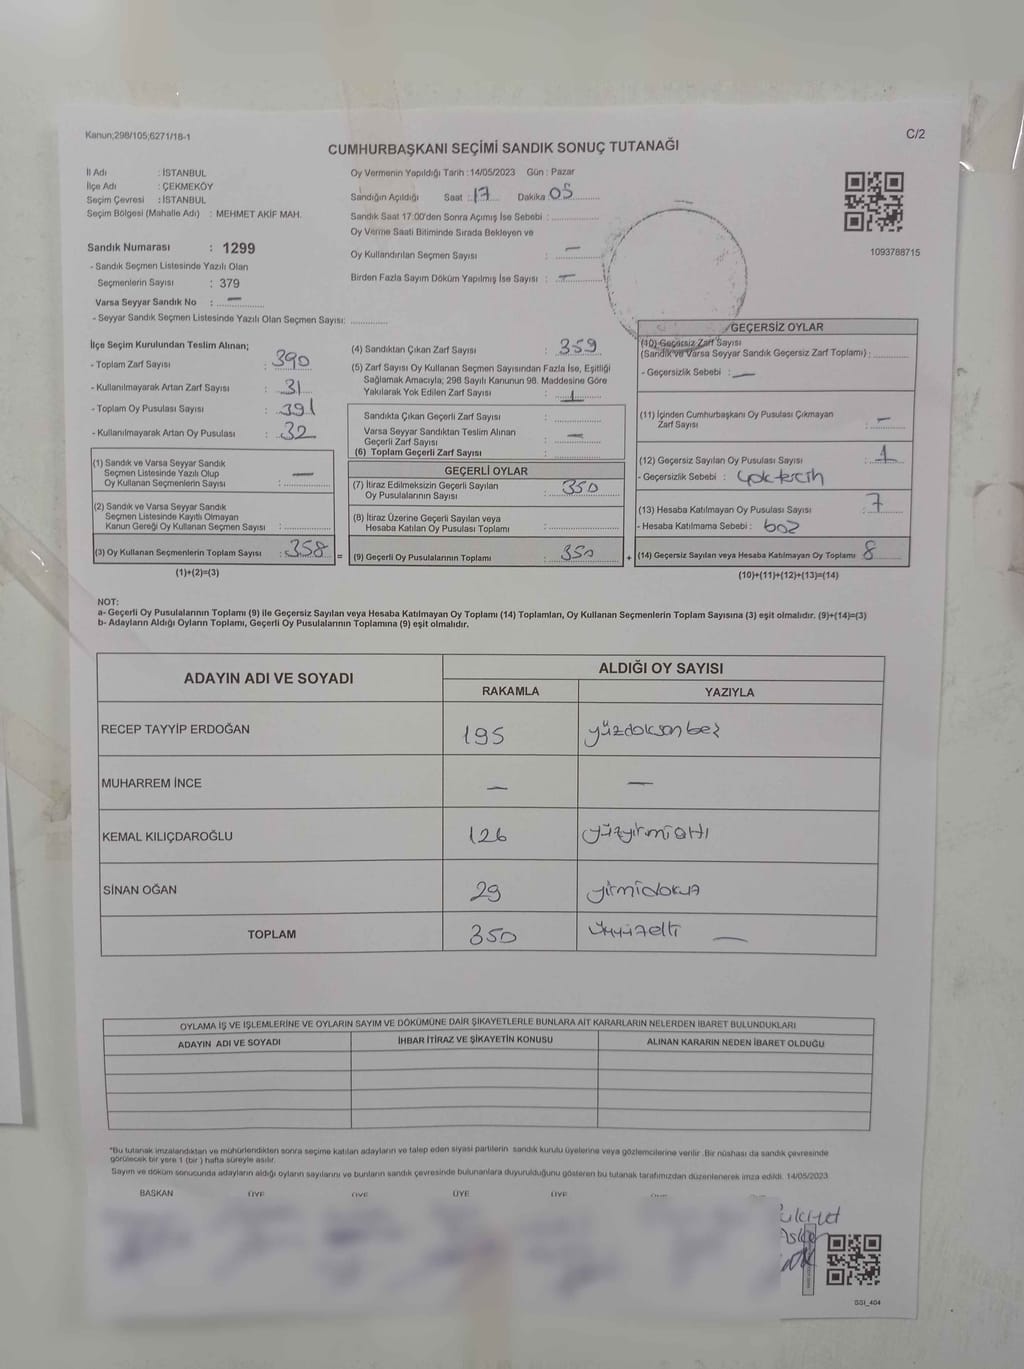 Kanun;298/105,6271/18-1
C/2
CUMHURBAŞKANI SEÇİMİ SANDIK SONUÇ TUTANAĞI
İl Adı : İSTANBUL
İlçe Adı : ÇEKMEKÖY
Seçim Çevresi : İSTANBUL
Seçim Bölgesi (Mahalle Adı) : MEHMET AKİF MAH.
Sandık Numarası : 1299
- Sandık Seçmen Listesinde Yazılı Olan
Seçmenlerin Sayısı : 379
Varsa Seyyar Sandık No : —
- Seyyar Sandık Seçmen Listesinde Yazılı Olan Seçmen Sayısı:
Oy Vermenin Yapıldığı Tarih : 14/05/2023 Gün : Pazar
Sandığın Açıldığı Saat : 17 Dakika 05
Sandık Saat 17:00'den Sonra Açımış İse Sebebi :
Oy Verme Saati Bitiminde Sırada Bekleyen ve
Oy Kullandırılan Seçmen Sayısı : —
Birden Fazla Sayım Döküm Yapılmış İse Sayısı : —
1093788715
İlçe Seçim Kurulundan Teslim Alınan;
- Toplam Zarf Sayısı : 390
- Kullanılmayarak Artan Zarf Sayısı : 31
- Toplam Oy Pusulası Sayısı : 391
- Kullanılmayarak Artan Oy Pusulası : 32
(1) Sandık ve Varsa Seyyar Sandık
Seçmen Listesinde Yazılı Olup
Oy Kullanan Seçmenlerin Sayısı : —
(2) Sandık ve Varsa Seyyar Sandık
Seçmen Listesinde Kayıtlı Olmayan
Kanun Gereği Oy Kullanan Seçmen Sayısı :
(3) Oy Kullanan Seçmenlerin Toplam Sayısı : 358 =
(1)+(2)=(3)
(4) Sandıktan Çıkan Zarf Sayısı : 359
(5) Zarf Sayısı Oy Kullanan Seçmen Sayısından Fazla İse, Eşitliği
Sağlamak Amacıyla; 298 Sayılı Kanunun 98. Maddesine Göre
Yakılarak Yok Edilen Zarf Sayısı : 1
Sandıkta Çıkan Geçerli Zarf Sayısı :
Varsa Seyyar Sandıktan Teslim Alınan
Geçerli Zarf Sayısı : —
(6) Toplam Geçerli Zarf Sayısı :
GEÇERLİ OYLAR
(7) İtiraz Edilmeksizin Geçerli Sayılan
Oy Pusulalarının Sayısı : 350
(8) İtiraz Üzerine Geçerli Sayılan veya
Hesaba Katılan Oy Pusulası Toplamı :
(9) Geçerli Oy Pusulalarının Toplamı : 350 +
GEÇERSİZ OYLAR
(10) Geçersiz Zarf Sayısı
(Sandık ve Varsa Seyyar Sandık Geçersiz Zarf Toplamı) :
- Geçersizlik Sebebi : —
(11) İçinden Cumhurbaşkanı Oy Pusulası Çıkmayan
Zarf Sayısı : —
(12) Geçersiz Sayılan Oy Pusulası Sayısı : 1
- Geçersizlik Sebebi : Çok tercih
(13) Hesaba Katılmayan Oy Pusulası Sayısı : 7
- Hesaba Katılmama Sebebi : boş
(14) Geçersiz Sayılan veya Hesaba Katılmayan Oy Toplamı 8
(10)+(11)+(12)+(13)=(14)
NOT:
a- Geçerli Oy Pusulalarının Toplamı (9) ile Geçersiz Sayılan veya Hesaba Katılmayan Oy Toplamı (14) Toplamları, Oy Kullanan Seçmenlerin Toplam Sayısına (3) eşit olmalıdır. (9)+(14)=(3)
b- Adayların Aldığı Oyların Toplamı, Geçerli Oy Pusulalarının Toplamına (9) eşit olmalıdır.
ADAYIN ADI VE SOYADI ALDIĞI OY SAYISI
RAKAMLA YAZIYLA
RECEP TAYYİP ERDOĞAN 195 yüzdoksanbeş
MUHARREM İNCE — —
KEMAL KILIÇDAROĞLU 126 yüzyirmialtı
SİNAN OĞAN 29 yirmidokuz
TOPLAM 350 üçyüzelli —
OYLAMA İŞ VE İŞLEMLERİNE VE OYLARIN SAYIM VE DÖKÜMÜNE DAİR ŞİKAYETLERLE BUNLARA AİT KARARLARIN NELERDEN İBARET BULUNDUKLARI
ADAYIN ADI VE SOYADI İHBAR İTİRAZ VE ŞİKAYETİN KONUSU ALINAN KARARIN NEDEN İBARET OLDUĞU
*Bu tutanak imzalandıktan ve mühürlendikten sonra seçime katılan adayların ve talep eden siyasi partilerin sandık kurulu üyelerine veya gözlemcilerine verilir .Bir nüshası da sandık çevresinde
görülecek bir yere 1 (bir ) hafta süreyle asılır.
Sayım ve döküm sonucunda adayların aldığı oyların sayılarını ve bunların sandık çevresinde bulunanlara duyurulduğunu gösteren bu tutanak tarafımızdan düzenlenerek imza edildi. 14/05/2023
BAŞKAN ÜYE ÜYE ÜYE ÜYE
SSI_404